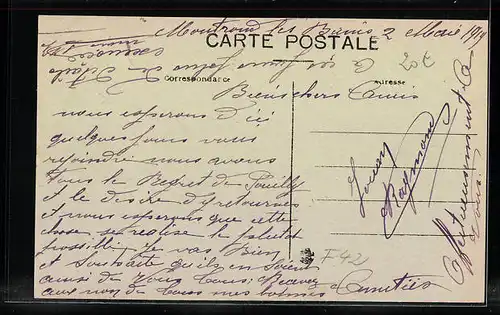 Montrond les Bains 2 Mars 1919
CARTE POSTALE
Correspondance
Adresse
20€
Bien chers Amis
nous esperons d'ici
quelques jours vous
rejoindre nous avons
tous le Regret de Pouilly
et le desire d'y retourner
et nous esperons que cette
chose se realise le plutot
possible je vas Bien
et Souhaite qu'il en Soient
ainsi de Vous tous Recevez
aux nom de tous mes bonnes Amitiés
Affectueusement a
tous
Raymond
F42